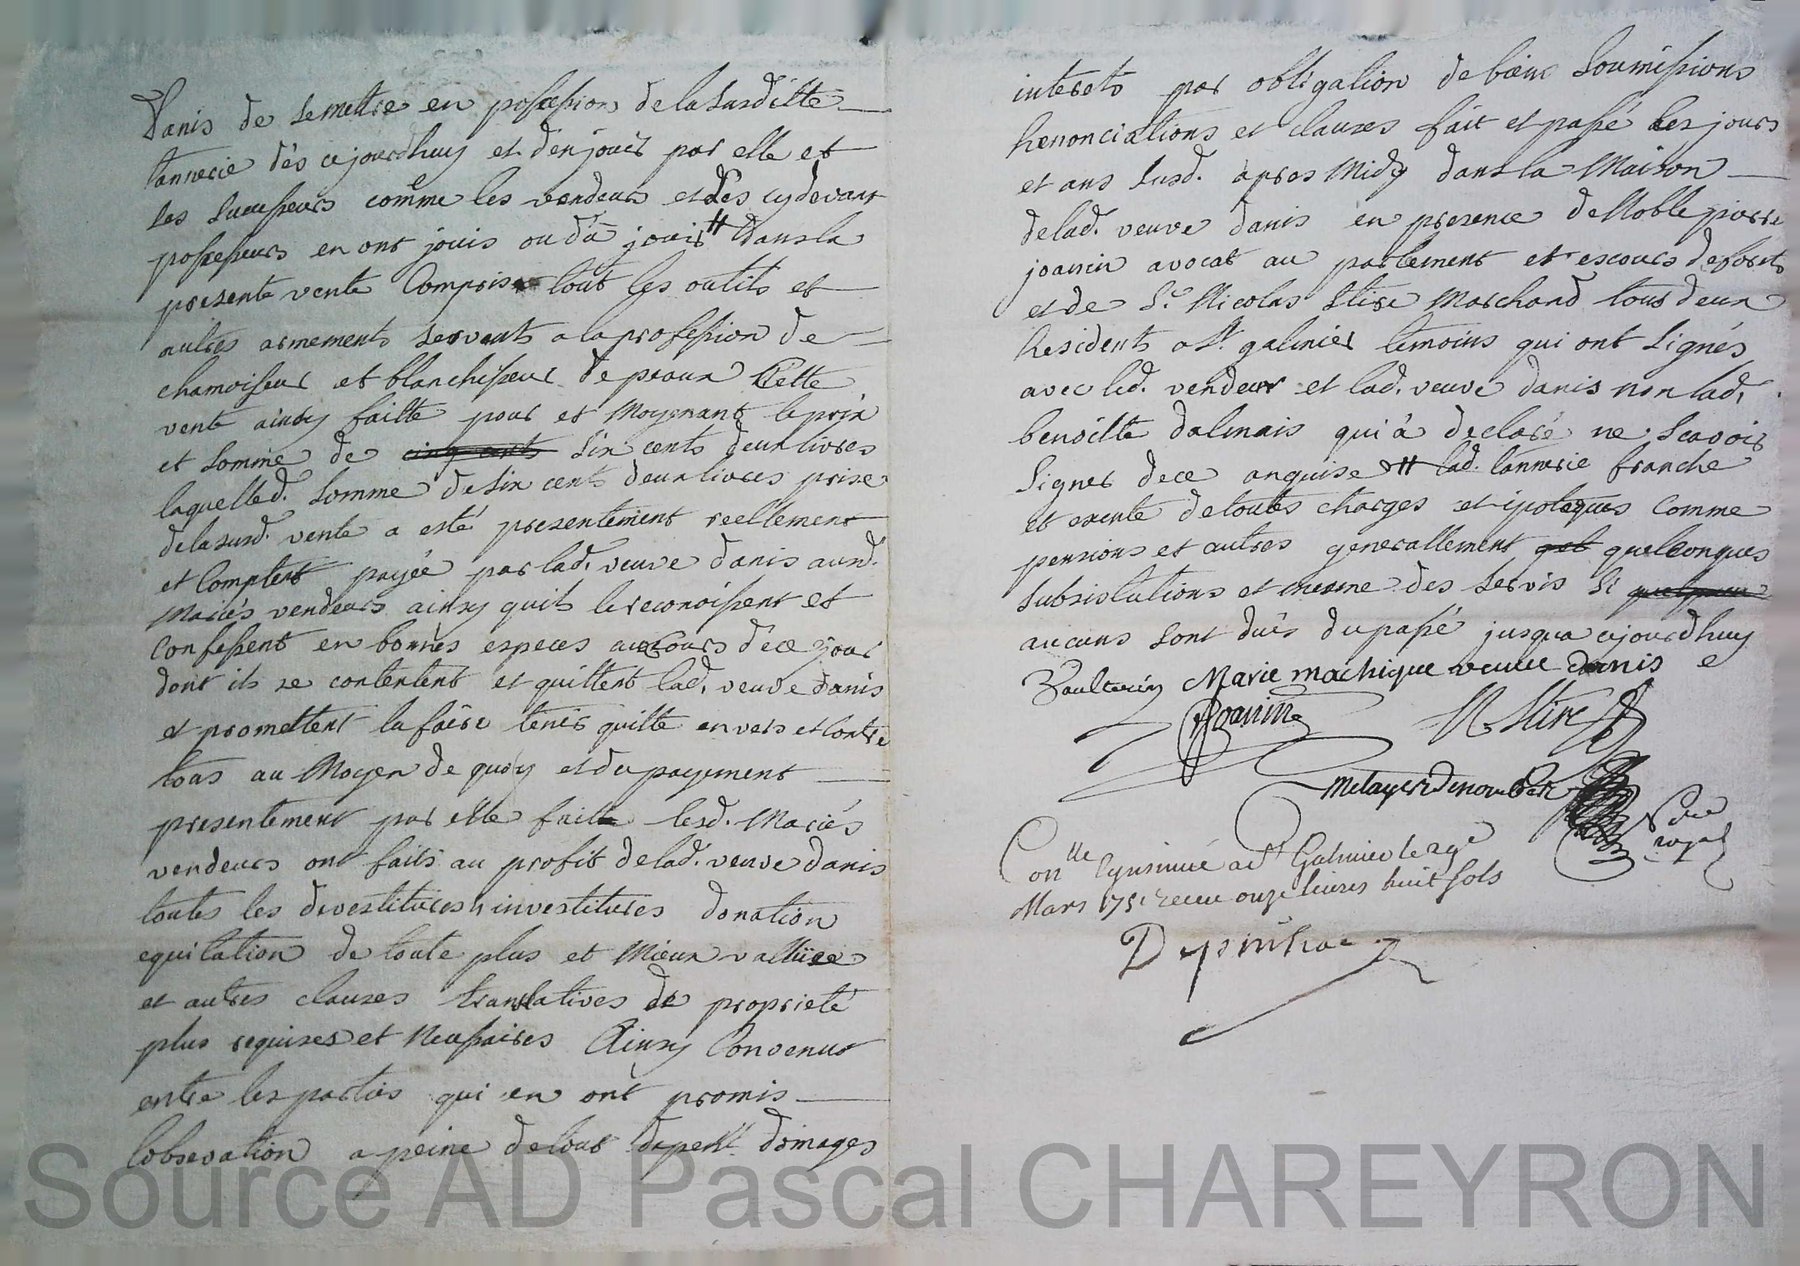 Danis de se mettre en possession de la susditte
tannerie dès ce jourdhuy et d'en jouir par elle et
ses successeurs comme les vendeurs et les cy devant
possesseurs en ont jouis ou dû jouir # dans la
presente vente Compris tout les outils et
autres armements servants a la profession de
chamoiseur et blanchisseur de peaux Cette
vente ainsy faitte pour et Moyenant le prix
et somme de cinq cents six cents deux livres
laquelled. somme de six cents deux livres prise
de la susd. vente a esté presentement reellement
et Comptent payée par lad. veuve danis ausd.
Mariés vendeurs ainsy quils le reconoissent et
Confessent en bonnes especes au Cours de ce jour
dont ils se contentent et quittent lad. veuve danis
et promettent la faire tenir quitte envers et Contre
tous au Moyen de quoy et du payement
presentement par elle fait lesd. Mariés
vendeurs ont faits au profit de lad. veuve danis
toutes les devestitures, investitures donation
equitation de toute plus et Mieux vallüe
et autres clauzes translatives de proprieté
plus requises et Necessaires Ainsy Convenus
entre les parties qui en ont promis
lobservation a peine de tous depent. domages
interets par obligation de biens Soumissions
Renonciations et clauzes fait et passé les jours
et ans susd. apres Midy dans la Maison
de lad. veuve danis en presence de Noble pierre
joanin avocat au parlement et
et de Sr. Nicolas Stire Marchand tous deux
Residents a St. galmier temoins qui ont signés
avec led. vendeur et lad. veuve danis non lad.
benoitte dalmais qui a declaré ne Scavoir
Signer de ce anquise # lad. tannerie franche
et exente de toutes charges et ipoteques Comme
pensions et autres generallement quelconques
subsistutions et mesme des servis Si
aucuns sont dués du passé jusqua ce jourdhuy
Marie machique veuve danis
Joanin N Stire
Metayer Denombret
Nre
royal
Con lle et insinué a St Galmier le 29e
Mars 1751 receu onze livres huit sols
Depinhac
Source AD Pascal CHAREYRON